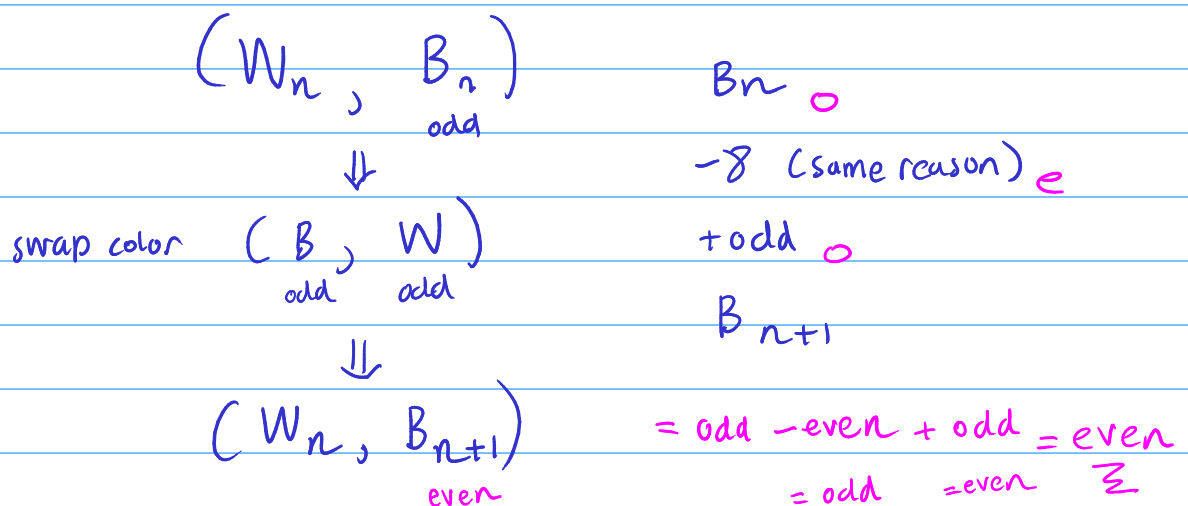 (Wn, Bn)
odd
⇓
swap color (B, W)
odd odd
⇓
(Wn, Bn+1)
even
Bn o
-8 (same reason) e
+odd o
Bn+1
= odd - even + odd = even
= odd =even